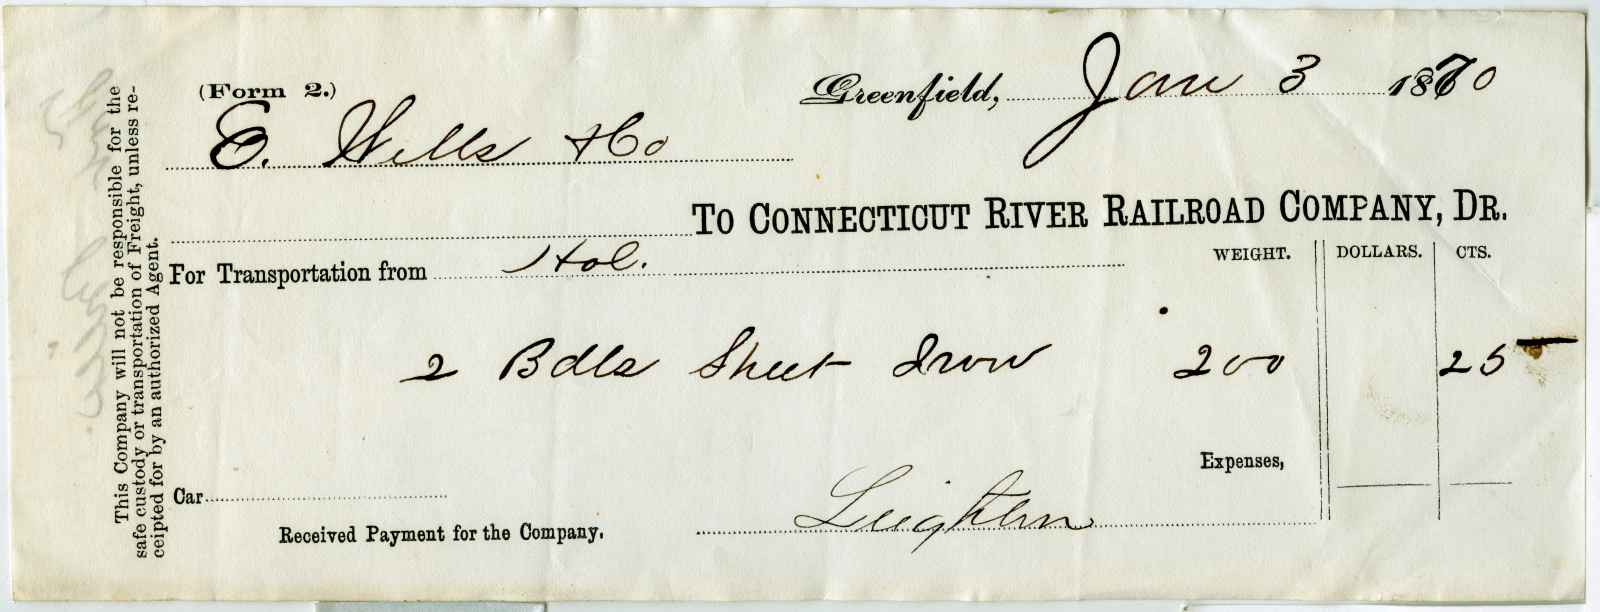 (Form 2.)
Greenfield, Jan 3 1870
E. Wells & Co
To Connecticut River Railroad Company, Dr.
For Transportation from Hol.
WEIGHT. DOLLARS. CTS.
2 Bdls Sheet Iron 200 25
Expenses,
Car
Received Payment for the Company. Leighton
This Company will not be responsible for the
safe custody or transportation of Freight, unless re-
ceipted for by an authorized Agent.